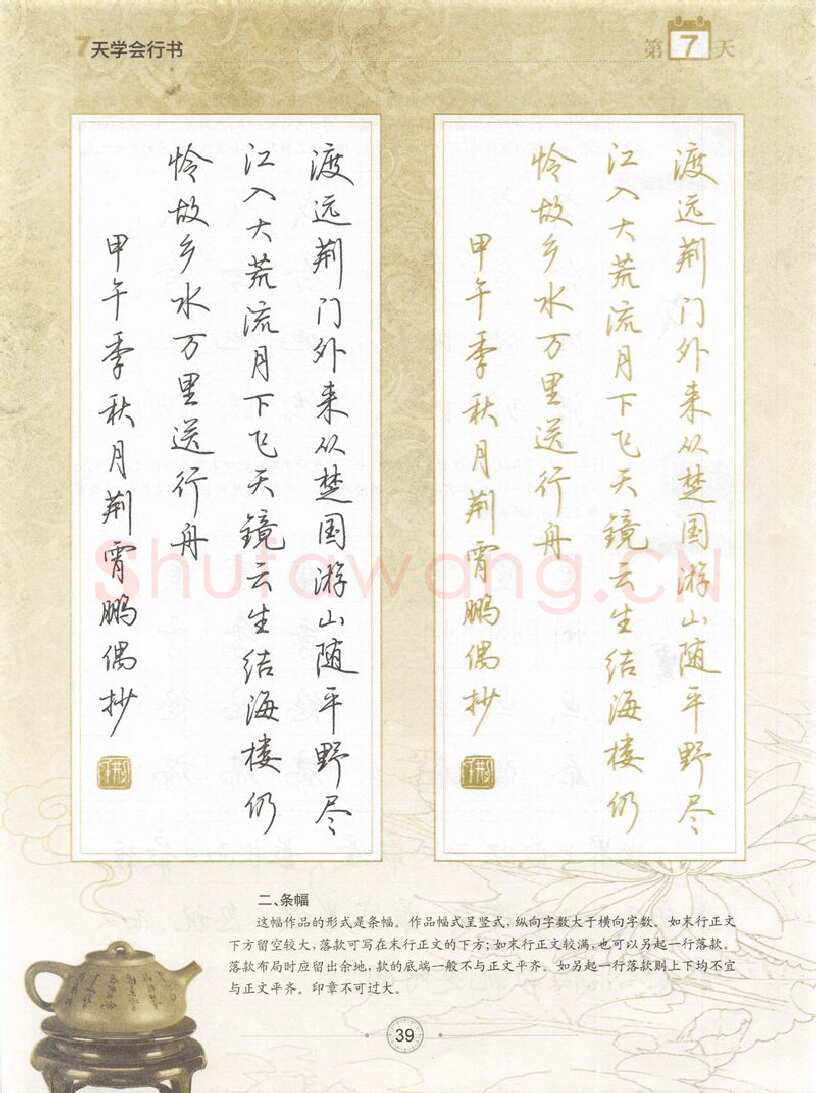 7天学会行书
第7天
渡远荆门外来从楚国游山随平野尽
江入大荒流月下飞天镜云生结海楼仍
怜故乡水万里送行舟
甲午季秋月荆霄鹏偶抄
渡远荆门外来从楚国游山随平野尽
江入大荒流月下飞天镜云生结海楼仍
怜故乡水万里送行舟
甲午季秋月荆霄鹏偶抄
Shufawang.CN
二、条幅
这幅作品的形式是条幅。作品幅式呈竖式,纵向字数大于横向字数。如末行正文
下方留空较大,落款可写在末行正文的下方;如末行正文较满,也可以另起一行落款。
落款布局时应留出余地,款的底端一般不与正文平齐。如另起一行落款则上下均不宜
与正文平齐。印章不可过大。
39